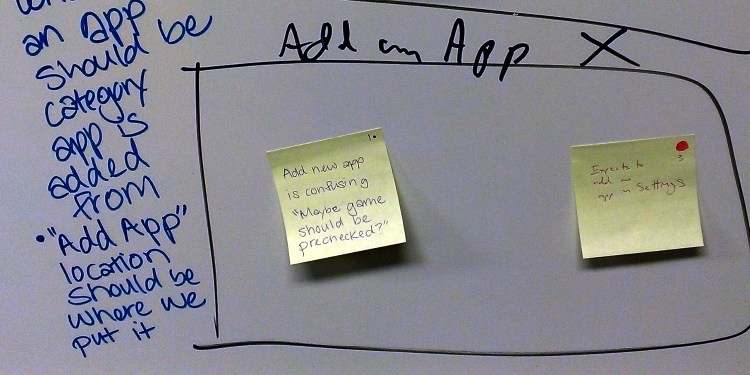 an app
should be
category
app is
added
from
• "Add App"
location
should be
where we
put it
Add an App X
1.
Add new app
is confusing
"Maybe game
should be
prechecked?"
3
Expects to
add an
app in Settings